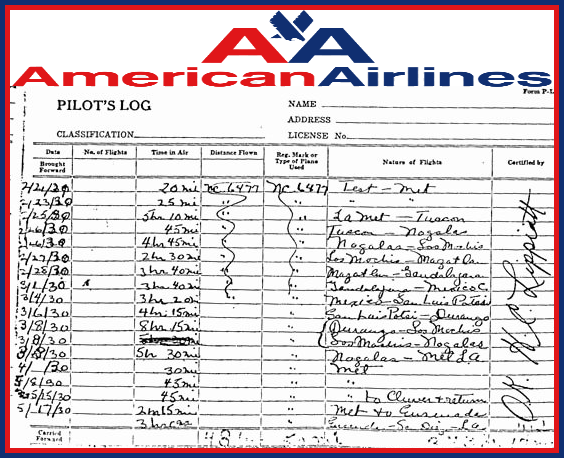 AA
American Airlines
Form P-L
PILOT'S LOG NAME
ADDRESS
CLASSIFICATION. LICENSE No.
Date No. of Flights Time in Air Distance Flown Reg. Mark or Type of Plane Used Nature of Flights Certified by
Brought Forward
2/21/30 20 mi NC.6477 NC.6477 Test - Met
2/23/30 25 mi " " "
2/25/30 5 hr 10 mi " " La Met - Tuscon
2/26/30 45 mi " " Tuscon - Nogales
2/26/30 4 hr 45 mi " " Nogalas - Los Mochis
2/27/30 2 hr 30 mi " " Los Mochis - Mazatlan
2/28/30 3 hr 40 mi " " Mazatlan - Gaudalajara
3/1/30 3 hr 40 mi " " Gaudalajara - Mexico C.
3/4/30 3 hr 20 " Mexico - San Luis Potosi
3/6/30 4 hr 15 mi " San Luis Potosi - Durango
3/8/30 8 hr 15 mi " Durango - Los Mochis
3/8/30 " Los Mochis - Nogales
3/8/30 5 hr 30 mi " Nogalas - Met L.A.
30 mi " Met
5/8/30 45 mi " "
5/15/30 45 mi " " to Clover & return
5/17/30 2 hr 15 mi " Met to Ensenada
3 hr " Ensenada - San Diego - LA
OK H.C. Lippiatt
Carried Forward